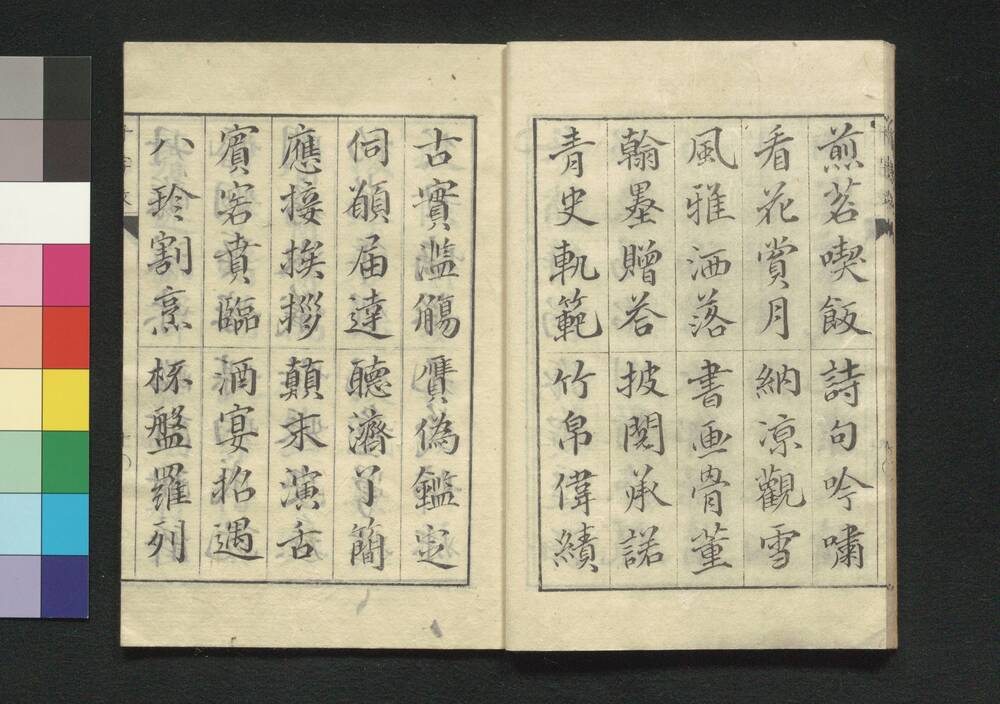 煎茗喫飯 詩句吟嘯
看花賞月 納凉觀雪
風雅洒落 書画骨董
翰墨贈荅 披閲承諾
青史軌範 竹帛偉績
古實濫觴 贋偽鑑定
伺願届達 聴濟了簡
應接挨拶 顛末演舌
賓客賁臨 酒宴招遇
八珍割烹 杯盤羅列